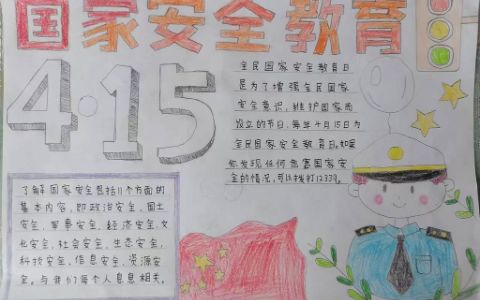 国家安全教育
4·15
全民国家安全教育日
是为了增强全民国家
安全意识,维护国家而
设立的节日,每年4月15日为
全民国家安全教育日。如果
你发现任何危害国家安
全的情况,可以拨打12339。
了解国家安全包括11个方面的
基本内容,即政治安全、国土
安全、军事安全、经济安全、文
化安全、社会安全、生态安全、
科技安全、信息安全、资源安
全。与我们每个人息息相关。